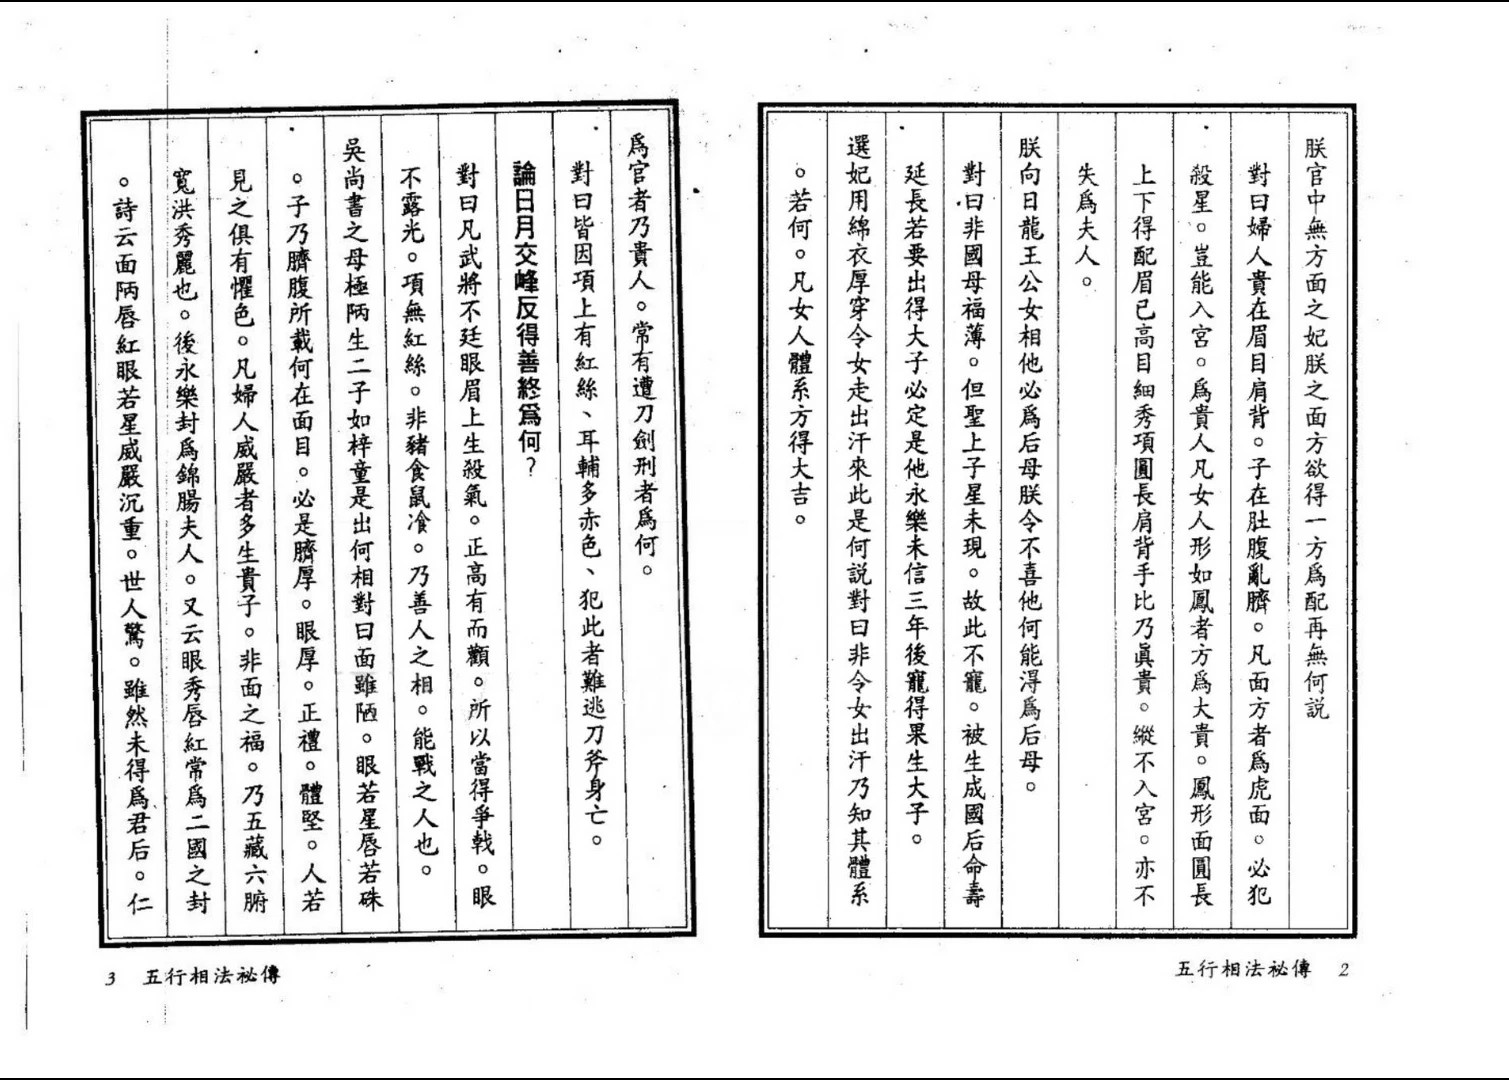 朕官中無方面之妃朕之面方欲得一方爲配再無何説
對曰婦人貴在眉目肩背。子在肚腹亂臍。凡面方者爲虎面。必犯
殺星。豈能入宮。爲貴人凡女人形如鳳者方爲大貴。鳳形面圓長
上下得配眉已高目細秀項圓長肩背手比乃眞貴。縱不入宮。亦不
失爲夫人。
朕向日龍王公女相他必爲后母朕令不喜他何能淂爲后母。
對曰非國母福薄。但聖上子星未現。故此不寵。被生成國后命壽
延長若要出得大子必定是他永樂未信三年後寵得果生大子。
選妃用綿衣厚穿令女走出汗來此是何説對曰非令女出汗乃知其體系
。若何。凡女人體系方得大吉。
五行相法祕傳 2
爲官者乃貴人。常有遭刀劍刑者爲何。
對曰皆因項上有紅絲、耳輔多赤色、犯此者難逃刀斧身亡。
論日月交峰反得善終爲何？
對曰凡武將不廷眼眉上生殺氣。正高有而顴。所以當得爭戟。眼
不露光。項無紅絲。非豬食鼠飡。乃善人之相。能戰之人也。
吳尚書之母極陋生二子如梓童是出何相對曰面雖陋。眼若星唇若硃
。子乃臍腹所載何在面目。必是臍厚。眼厚。正禮。體堅。人若
見之俱有懼色。凡婦人威嚴者多生貴子。非面之福。乃五藏六腑
寬洪秀麗也。後永樂封爲錦腸夫人。又云眼秀唇紅常爲二國之封
。詩云面陋唇紅眼若星威嚴沉重。世人驚。雖然未得爲君后。仁
3 五行相法祕傳